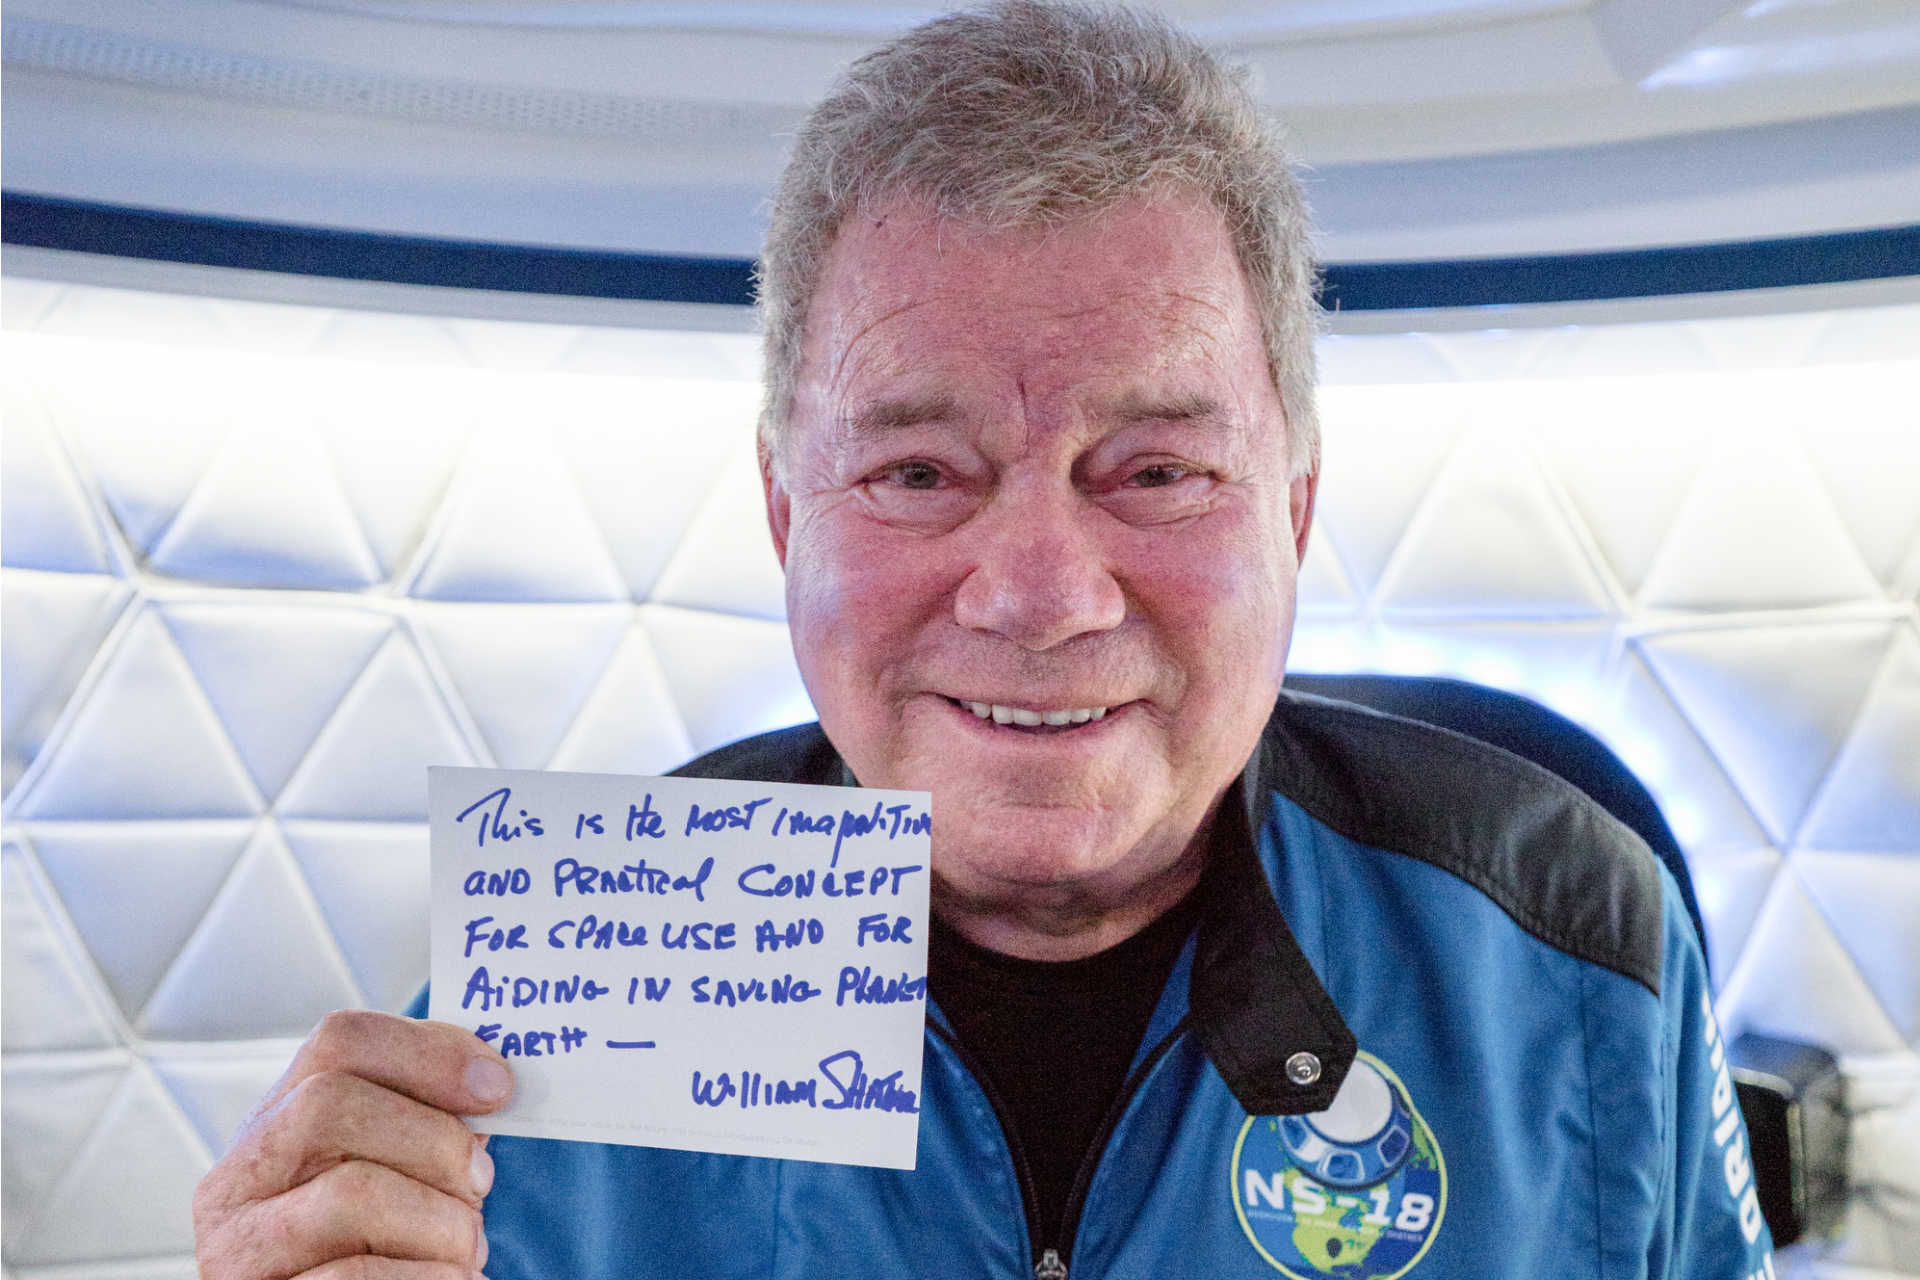 This is the MOST Imapritive
AND PRActical CONCEPT
FOR SPACE USE AND FOR
AiDING IN SAVING PLANET
EARTH —
William SHATNER
NS-18
ORIGIN